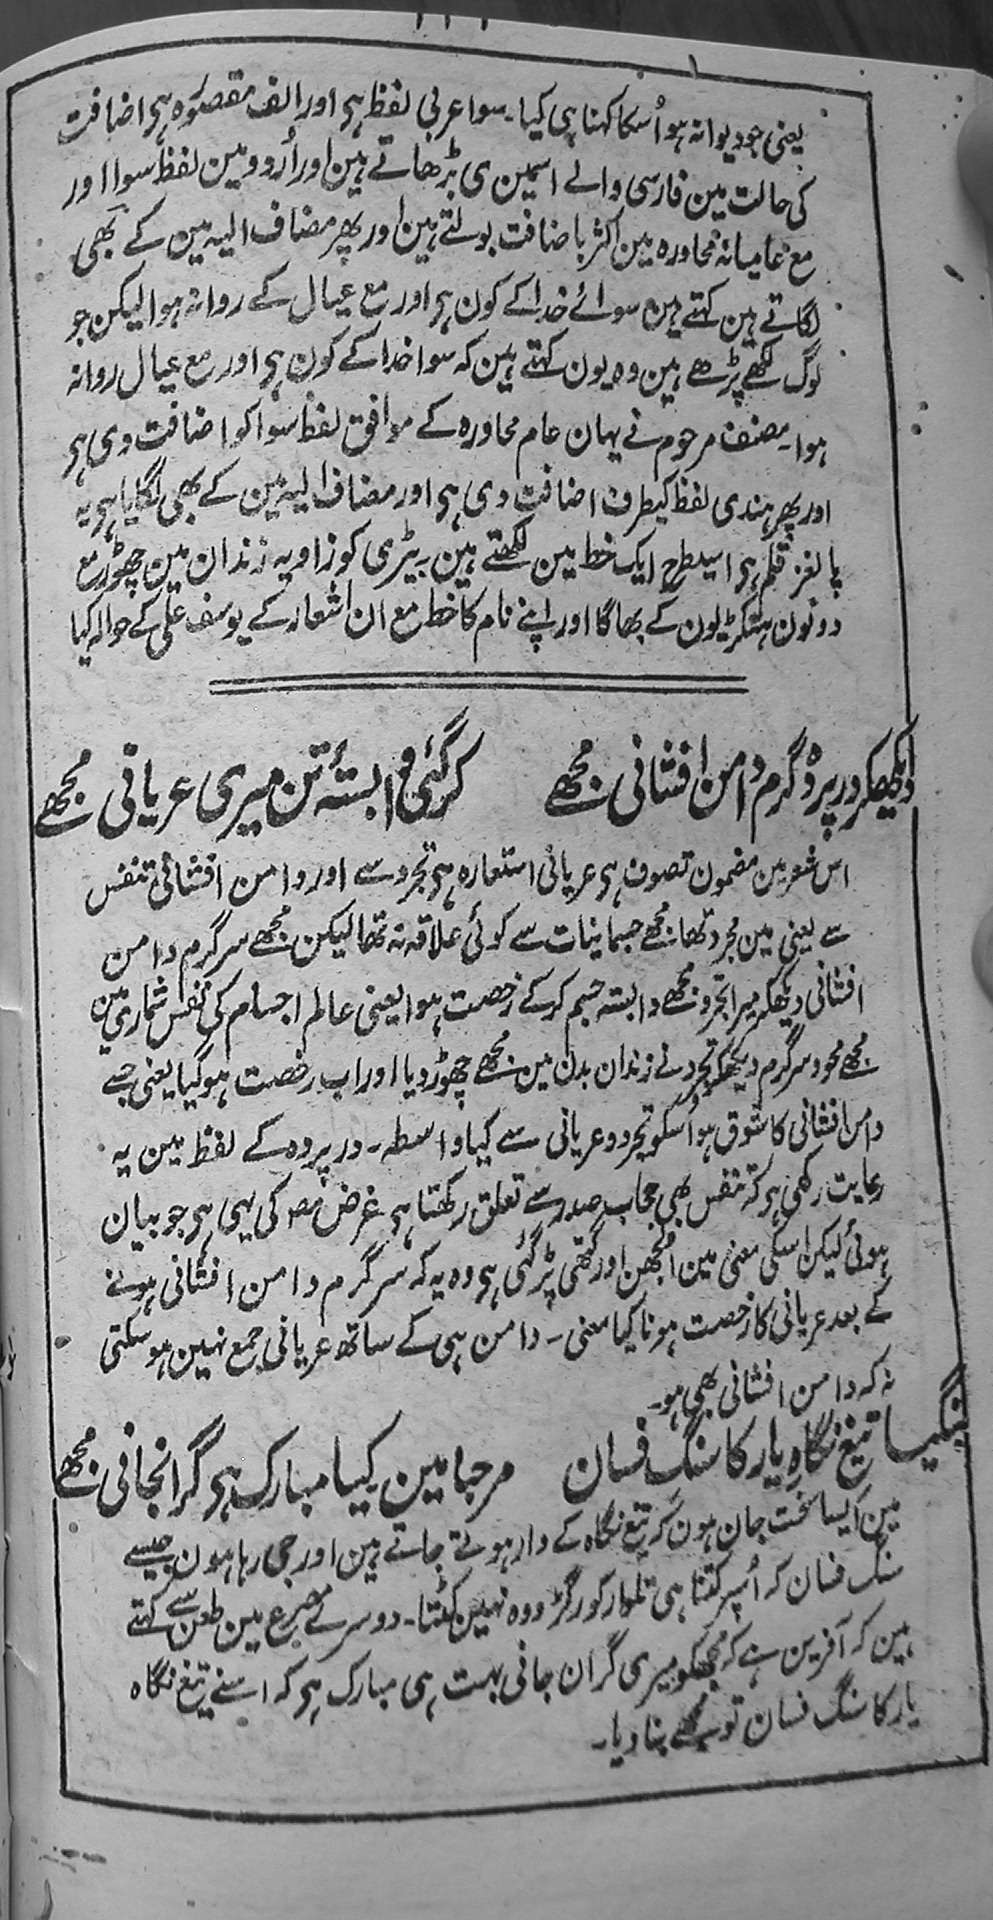 یعنی جو دیوانہ ہو اُسکا کہنا ہی کیا۔ سوا عربی لفظ ہی اور الف مقصورہ ہی اضافت
کی حالت مین فارسی والے اسمین ی بڑھاتے ہین اور اُردو مین لفظ سوا اور
مع عامیانہ محاورہ مین اکثر باضافت بولتے ہین اور پھر مضاف الیہ مین کے بھی
لگاتے ہین کہتے ہین سوائے خدا کے کون ہی اور مع عیال کے روانہ ہوا لیکن جو
لوگ لکھے پڑھے ہین وہ یون کہتے ہین کہ سوا خدا کے کون ہی اور مع عیال روانہ
ہوا۔ مصنف مرحوم نے یہان عام محاورہ کے موافق لفظ سوا کو اضافت دی ہی
اور پھر ہندی لفظ کیطرف اضافت دی ہی اور مضاف الیہ مین کے بھی لگایا ہی یہ
پالغز قلم ہی اسیطرح ایک خط مین لکھتے ہین۔ بیڑی کو زاویہ زندان مین چھوڑ مع
دونون ہتکڑیون کے بھاگا اور اپنے نام کا خط مع ان اشعار کے یوسف علی کے حوالہ کیا
دیکھکر در پردہ گرم دامن افشانی مجھے کر گئی وابستۂ تن میری عریانی مجھے
اس شعر مین مضمون تصوف ہی عریانی استعارہ ہی تجرد سے اور دامن افشانی تنفس
سے یعنی مین مجرد تھا مجھے جسمانیات سے کوئی علاقہ نہ تھا لیکن مجھے سرگرم دامن
افشانی دیکھکر میرا تجرد مجھے وابستہ جسم کرکے رخصت ہوا یعنی عالم اجسام کی نفس شماری مین
مجھے محو و سرگرم دیکھکر تجرد نے زندان بدن مین مجھے چھوڑ دیا اور اب رخصت ہوگیا یعنی جسے
دامن افشانی کا شوق ہو اُسکو تجرد و عریانی سے کیا واسطہ۔ در پردہ کے لفظ مین یہ
رعایت رکھی ہی کہ تنفس بھی حجاب صدر سے تعلق رکھتا ہی غرض مصہ کی یہی ہی جو بیان
ہوئی لیکن اسکی معنی مین اُلجھن اور گتھی پڑ گئی ہی وہ یہ کہ سرگرم دامن افشانی ہونے
کے بعد عریانی کا رخصت ہونا کیا معنی۔ دامن ہی کے ساتھ عریانی جمع نہین ہو سکتی
نہ کہ دامن افشانی بھی ہو۔
بنگیا تیغ نگاہِ یار کا سنگ فسان مرحبا مین کیا مبارک ہی گرانجانی مجھے
مین ایسا سخت جان ہون کہ تیغ نگاہ کے وار ہوتے جاتے ہین اور جی رہا ہون جیسے
سنگ فسان کہ اُسپر کتنا ہی تلوار کو رگڑو وہ نہین کٹتا۔ دوسرے مصرع مین طعن سے کہتے
ہین کہ آفرین ہے کہ مجھکو میری گران جانی بہت ہی مبارک ہی کہ اسنے تیغ نگاہ
یار کا سنگ فسان تو مجھے بنا دیا۔